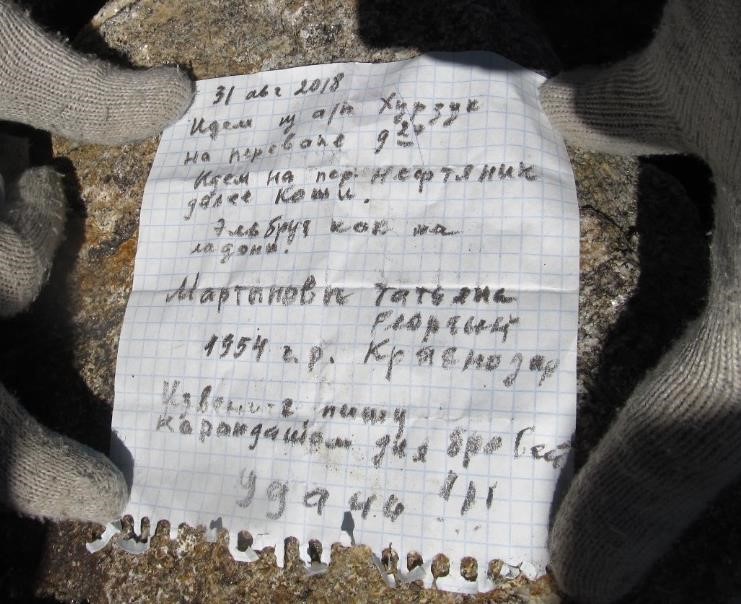 31 авг 2018
Идем из а/л Хурзук
на перевале 9 24
Идем на пер. Нефтяник
далее Коши.
Эльбрус как на
ладони.
Мартыновы Татьяна
Георгий
1954 г.р. Краснодар
Извените пишу
карандашом для бровей
Удачи !!!